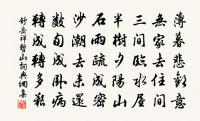 薄暮悲歡意
無家去住間
三間臨水屋
半樹夕陽山
石雨疏成密
沙潮去未還
數旬成臥病
轉成轉多艱
舒岳祥暫山詞典網集